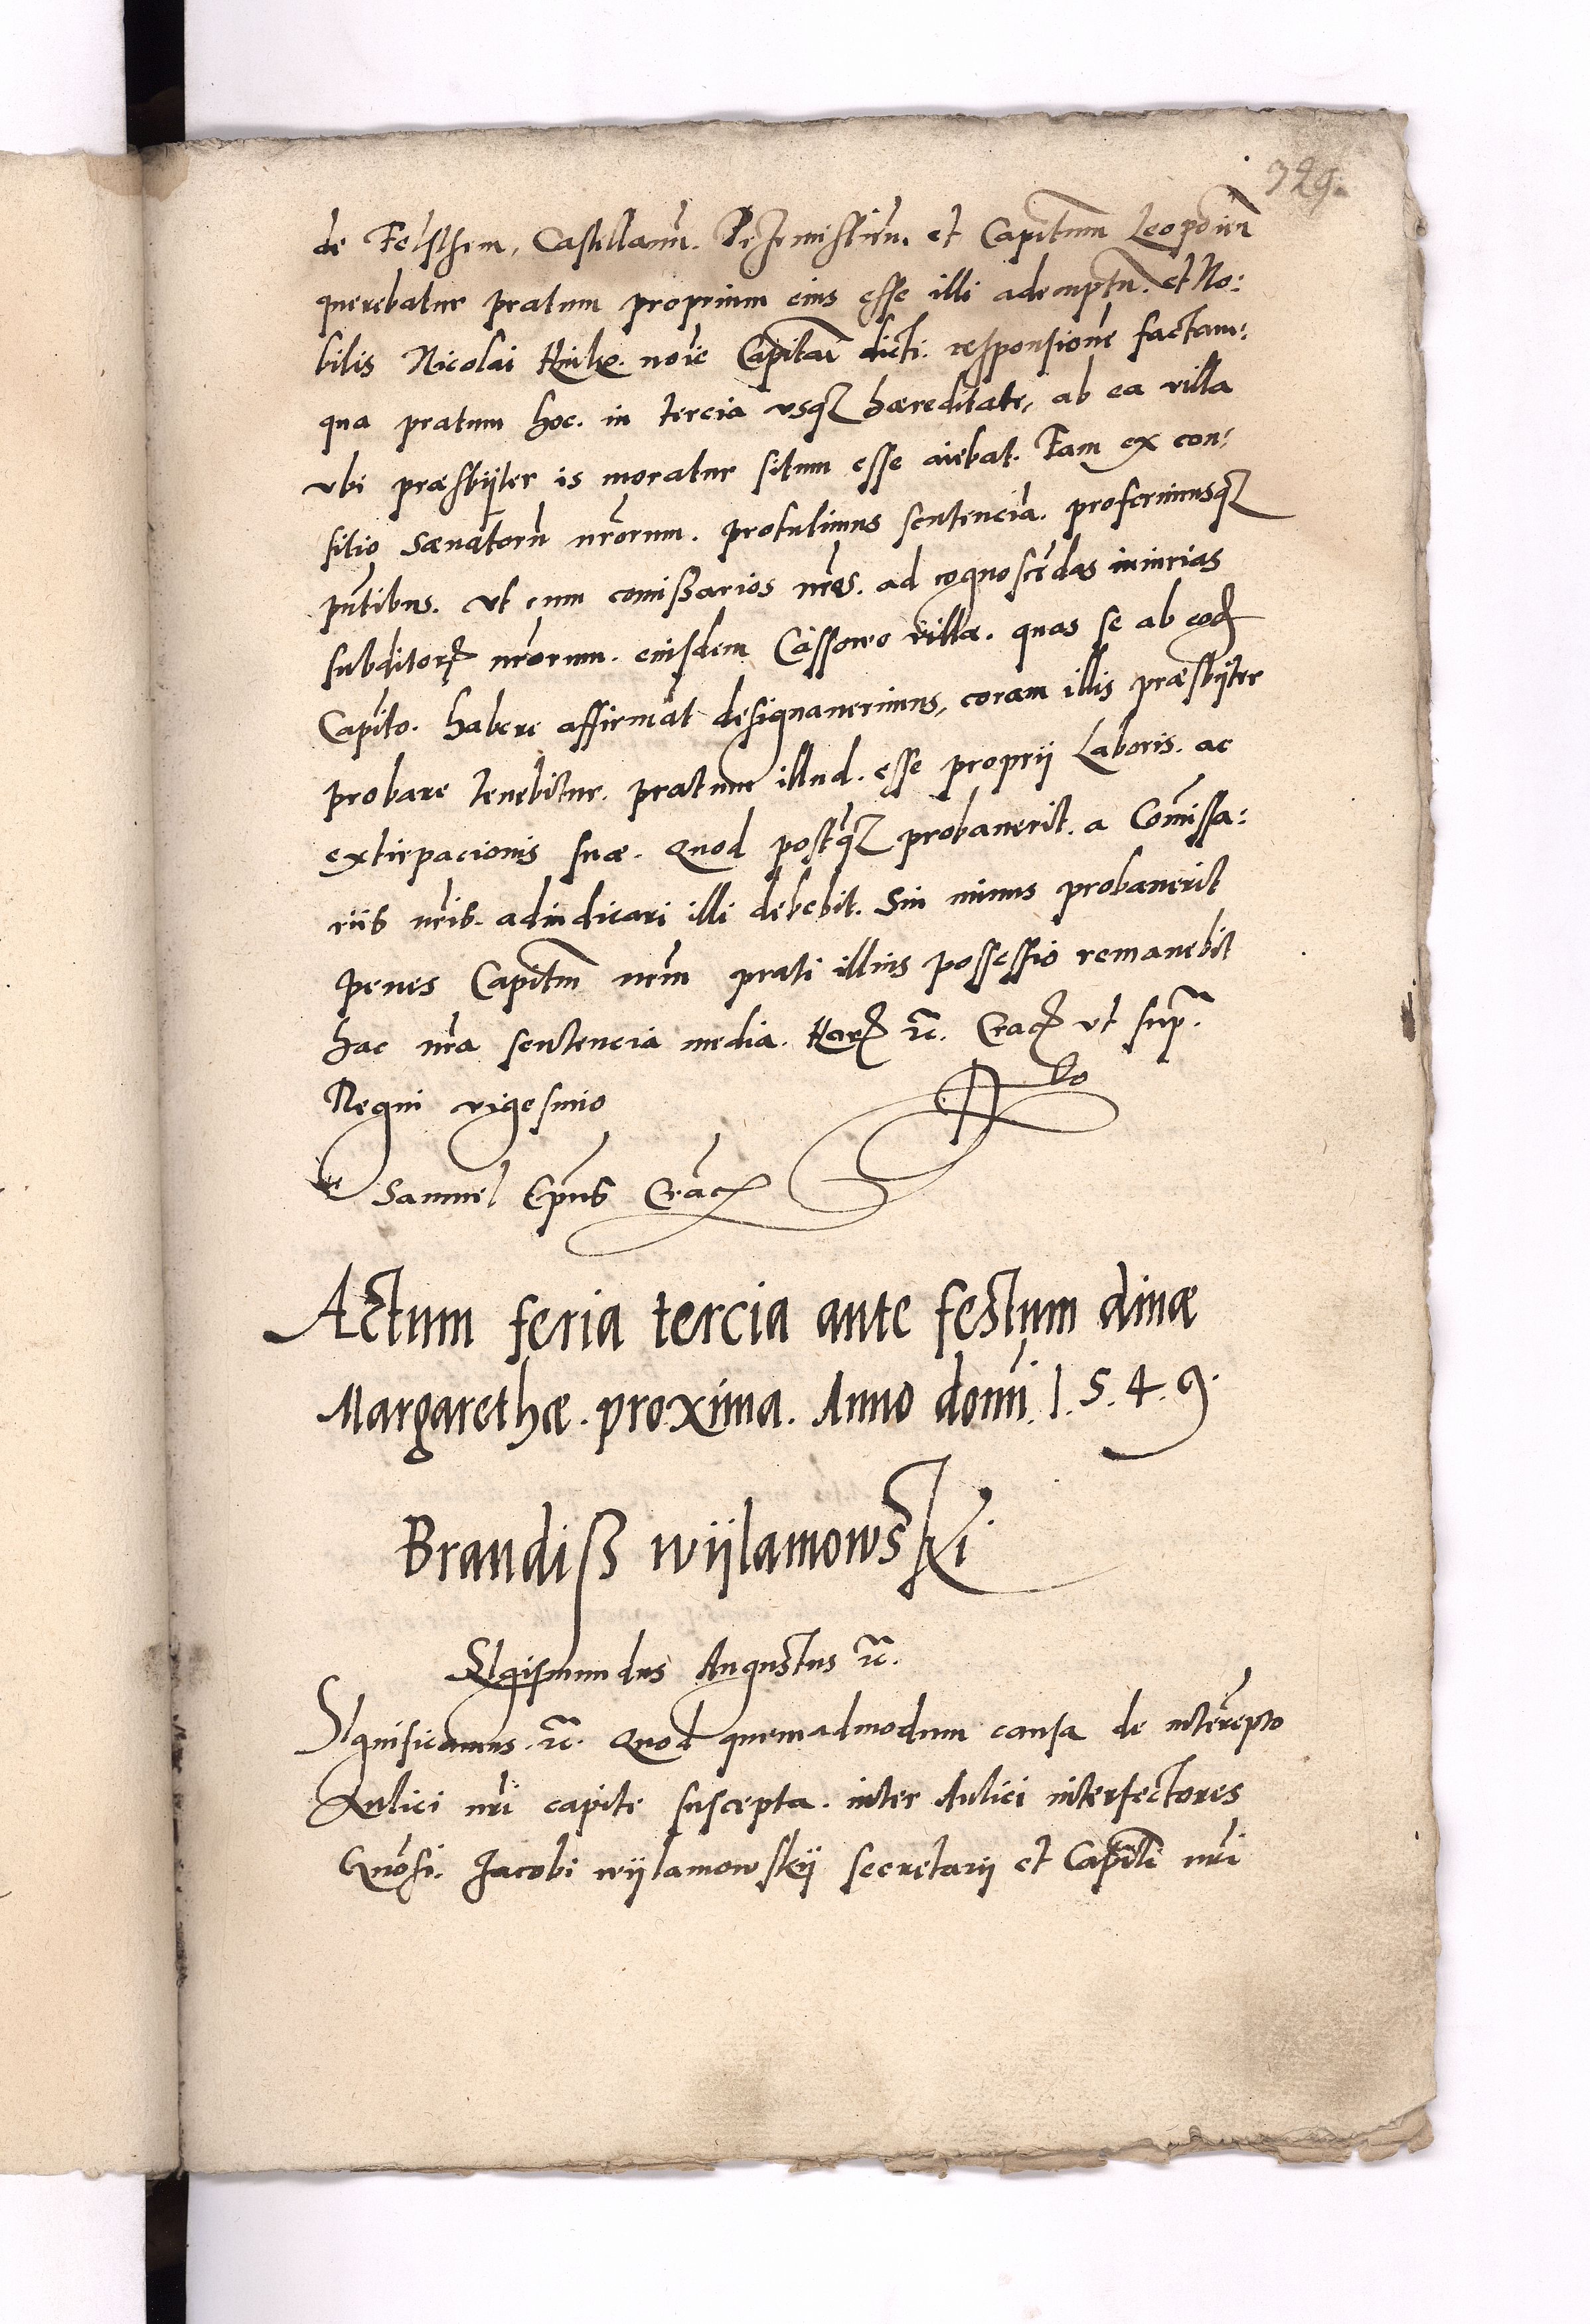 329.
de Felsthem, Castellanū. Prżemisliēn. et Capitneū Leopolień
querebatur pratum proprium eius esse illi ademptū. et No:
bilis Nicolai noīe Capitaī dicti. responsionē factam:
qua pratum hoc. in tercia vsq hæreditate, ab ea villa
vbi præsbÿter is moratur situm esse aiebat. Tam ex con:
silio Sænatorū nr̄orum. protulimus sentenciā. proferimusq
pn̄tibus. vt cum comissarios nr̄os. ad cognoscēdas iniurias
subditor nr̄orum. eiusdem Cassowo villæ. quas se ab eod
Capito. habere affirmāt designauerimus, coram illis præsbÿter
probare tenebitur. pratum illud. esse proprij Laboris. ac
extirpacionis suæ. Quod postq probauerit. a Comissa:
riis nr̄is. adiudicari illi debebit. Sin minus probauerit
penes Capitm nr̄m prati illius possessio remanebit
hac nr̄a sentencia media. Har rc. Crac vt sup.
Regni vigesimo
Samuel Ep̄us Crac
Actum feria tercia ante festum diuæ
Margarethæ. proxima. Anno domi. 1. 5. 4. 9.
Brandiß wijlamowski
Sigismundus Augustus rc.
Significamus. rc. Quod quemadmodum causa de interēpto
Aulici nr̄i capite suscepta. inter Aulici interfectores
Gn̄osi. Jacobi wijlamowskij secretarij et Capitī nr̄i